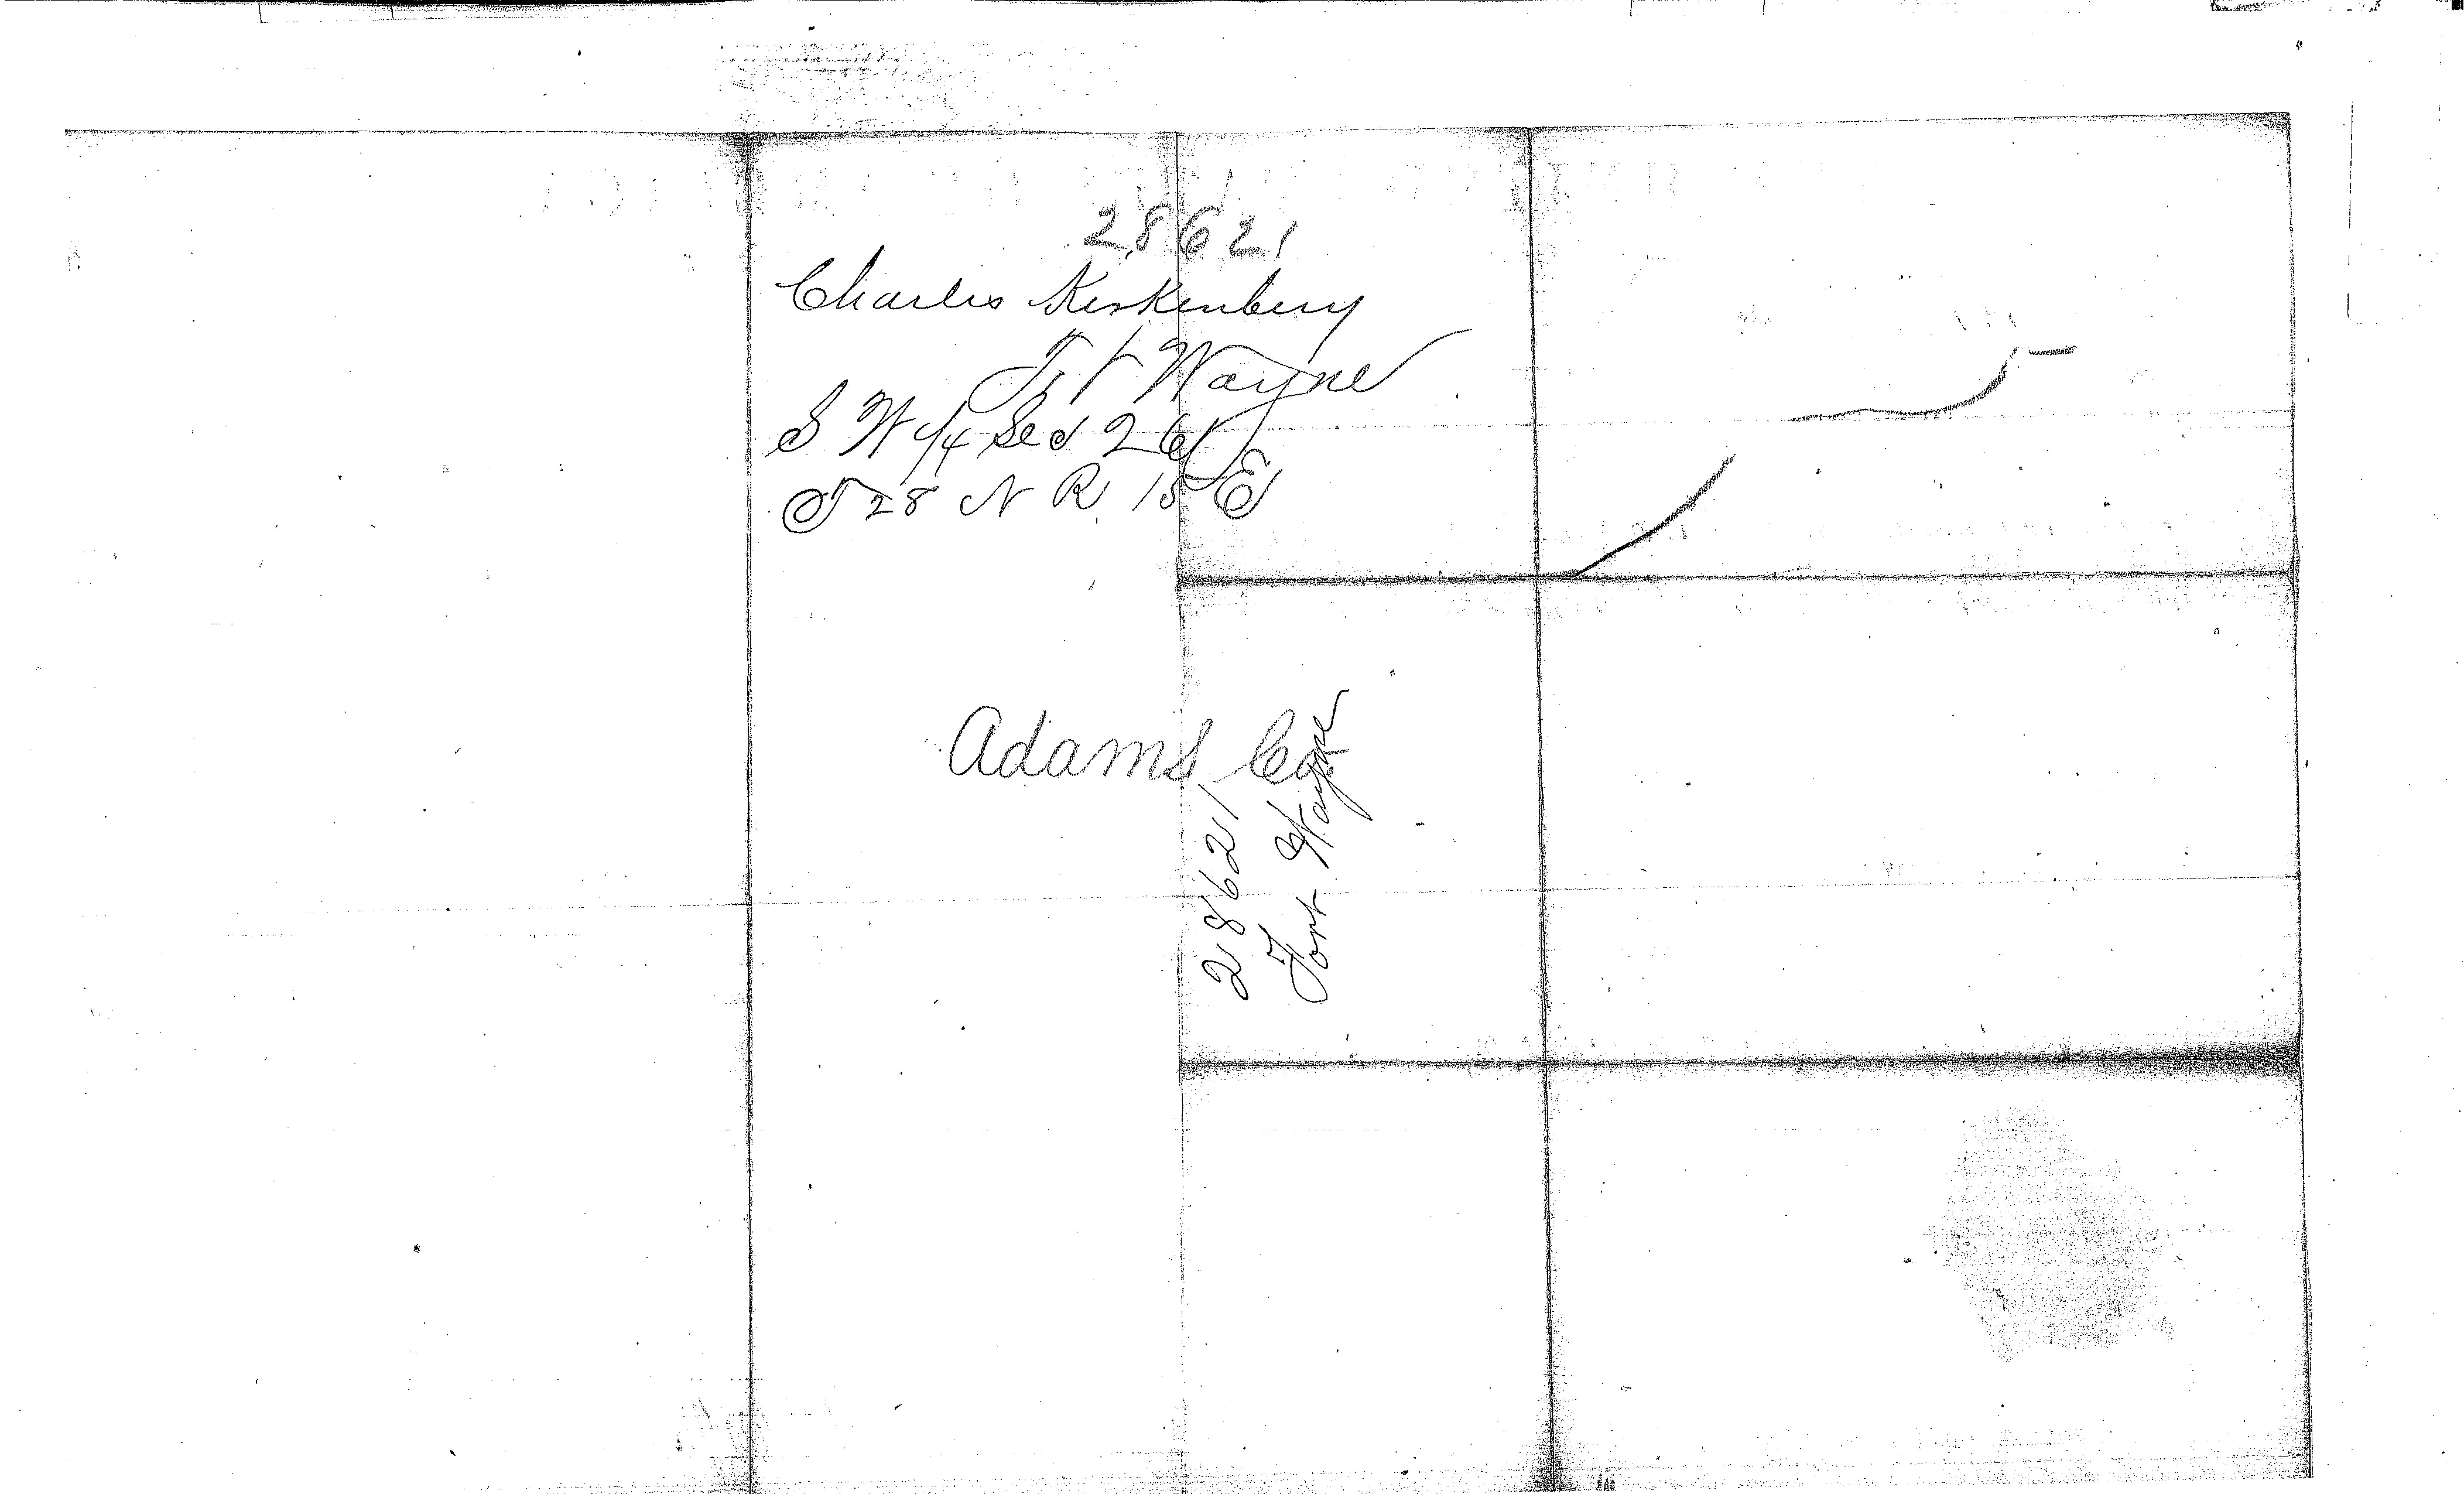 28621
Charles Keskenbery
Ft Wayne
S W 1/4 Sec 26
T 28 N R. 15 E
Adams Co.
28621
Fort Wayne